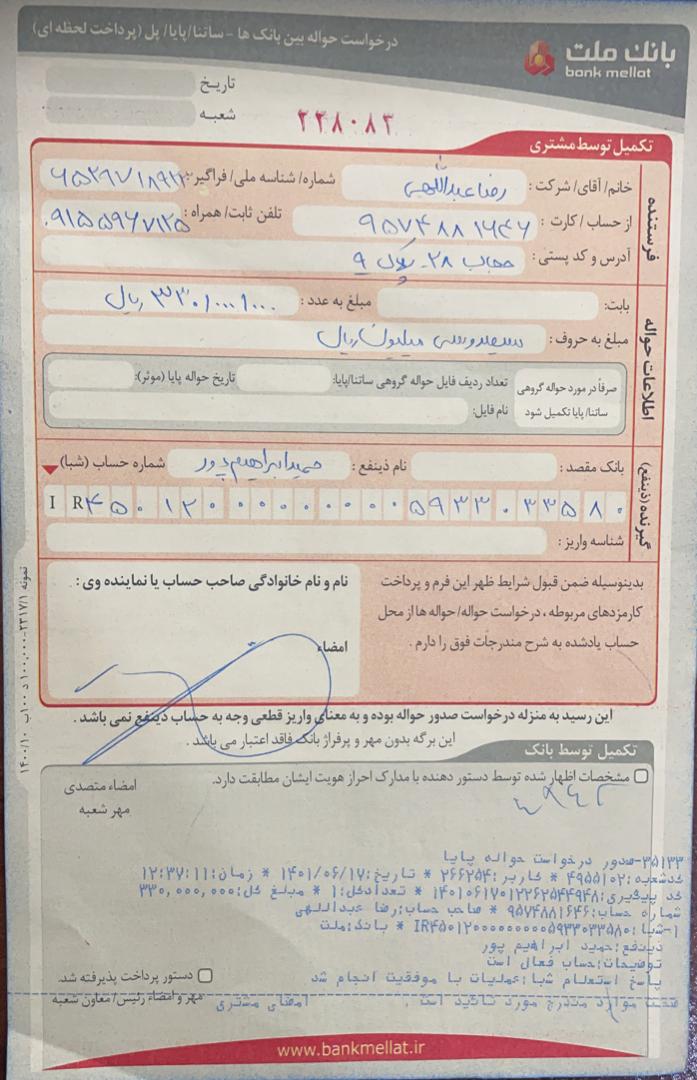 درخواست حواله بین بانک ها - ساتنا/پایا/ پل (پرداخت لحظه ای)
بانک ملت
bank mellat
تاریخ
شعبه
۲۳۸۰۸۳
تکمیل توسط مشتری
فرستنده
خانم/ آقای/ شرکت : رضا عبداللهی شماره/ شناسه ملی/ فراگیر:
از حساب / کارت : ۹۵۷۴۸۸۱۶۴۶ تلفن ثابت/ همراه : ۰۹۱۵۵۹۶۷۱۲۵
آدرس و کد پستی : حجاب ۲۸ - پلاک ۹
اطلاعات حواله
بابت: مبلغ به عدد : ۳۳۰/۰۰۰/۰۰۰ ریال
مبلغ به حروف : سیصد و سی میلیون ریال
صرفاً در مورد حواله گروهی ساتنا/ پایا تکمیل شود
تعداد ردیف فایل حواله گروهی ساتنا/پایا: تاریخ حواله پایا (موثر):
نام فایل:
گیرنده (ذینفع)
بانک مقصد : نام ذینفع : حمید ابراهیم پور شماره حساب (شبا)
I R ۴۵۰۱۲۰۰۰۰۰۰۰۰۰۵۹۳۳۰۳۳۵۸۰
شناسه واریز :
بدینوسیله ضمن قبول شرایط ظهر این فرم و پرداخت
کارمزدهای مربوطه ، درخواست حواله/ حواله ها از محل
حساب یادشده به شرح مندرجات فوق را دارم .
نام و نام خانوادگی صاحب حساب یا نماینده وی :
امضاء
این رسید به منزله درخواست صدور حواله بوده و به معنای واریز قطعی وجه به حساب ذینفع نمی باشد .
این برگه بدون مهر و پرفراژ بانک فاقد اعتبار می باشد .
تکمیل توسط بانک
مشخصات اظهار شده توسط دستور دهنده با مدارک احراز هویت ایشان مطابقت دارد.
امضاء متصدی
مهر شعبه
۳۵۱۳۳-صدور درخواست حواله پایا
کدشعبه:۴۹۵۵۱۰۲ * کاربر:۲۶۶۲۵۴ * تاریخ:۱۴۰۱/۰۶/۱۷ * زمان:۱۲:۳۷:۱۱
کد پیگیری:۱۴۰۱۰۶۱۷۰۱۲۲۶۲۵۴۴۹۴۸ * تعدادکل:۱ * مبلغ کل:۳۳۰,۰۰۰,۰۰۰
شماره حساب:۹۵۷۴۸۸۱۶۴۶ * صاحب حساب:رضا عبداللهی
۱-شبا:IR۴۵۰۱۲۰۰۰۰۰۰۰۰۰۵۹۳۳۰۳۳۵۸۰ * بانک:ملت
ذینفع:حمید ابراهیم پور
توضیحات:حساب فعال است
پاسخ استعلام شبا:عملیات با موفقیت انجام شد
صحت موارد مندرج مورد تائید است . امضای مشتری
دستور پرداخت پذیرفته شد.
مهر و امضاء رئیس/ معاون شعبه
www.bankmellat.ir
نمونه ۲۳۱۷/۱-۱۰۰,۰۰۰ د ۱۰۰ ب ۱۴۰۰/۱۰